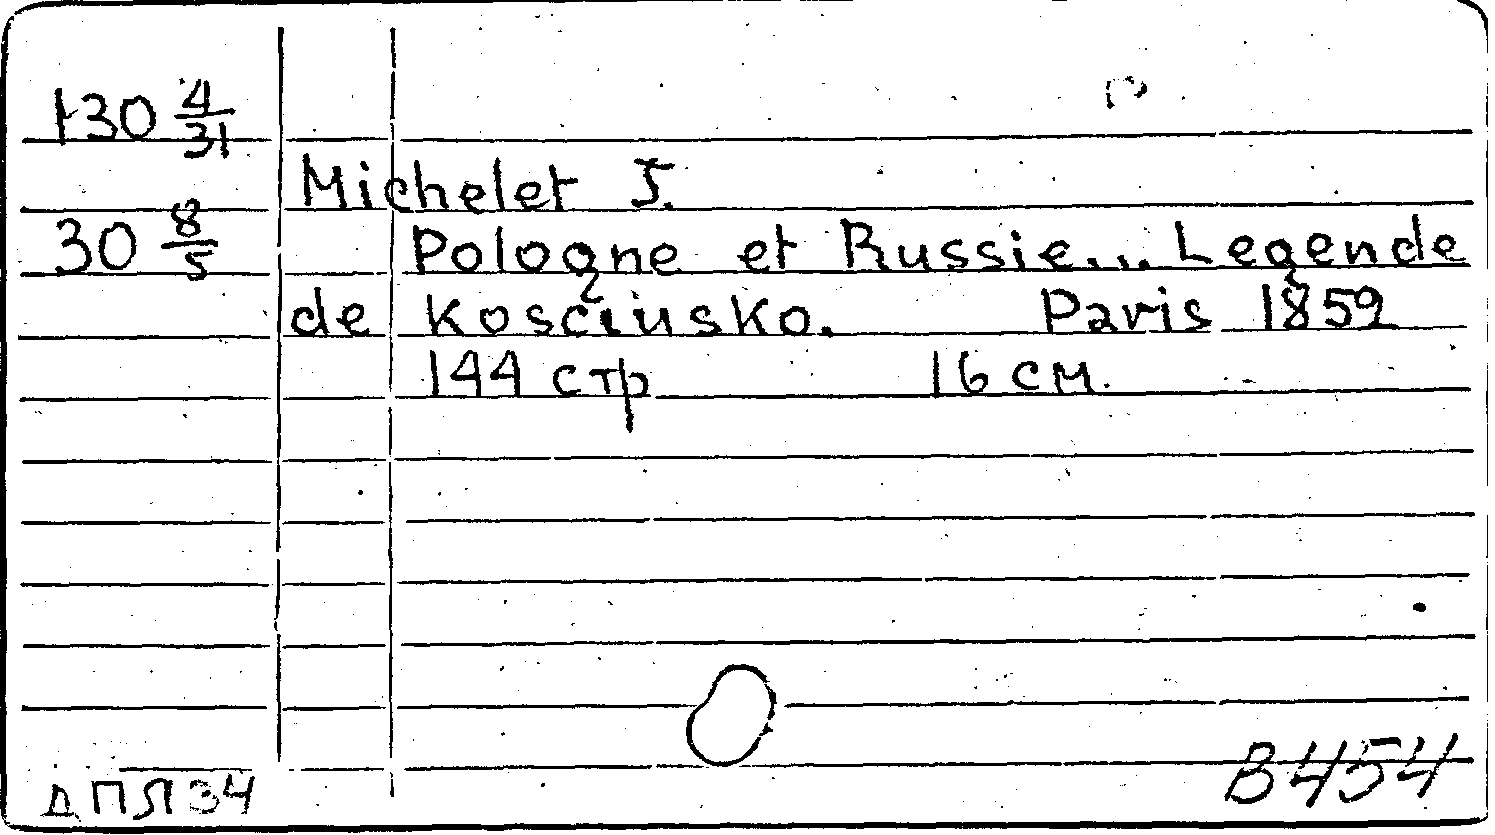 130 4/31
Michelet J.
30 8/5 Pologne et Russie... Legende
de Kosciusko. Paris 1859
144 стр 16 см.
ДПЛ 34 В 454